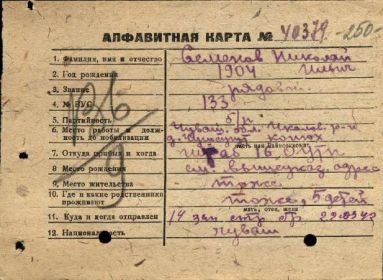 АЛФАВИТНАЯ КАРТА № 40379 -250-
1. Фамилия, имя и отчество Семенов Николай
Ильич
2. Год рождения 1904
3. Звание рядовой
4. № ВУС 133
5. Партийность б/п
6. Место работы и долж-
ность до мобилизации Чуваш. обл. Чкалов. р-н
д. колхоз
7. Откуда прибыл и когда Штаб 16
8. Место рождения см. вышеуказ. адрес
9. Место жительства тоже
10. Где и какие родственники
проживают тоже, 5 детей
мать, отец, жена
11. Куда и когда отправлен 14 зап стр бр
12. Национальность чуваш